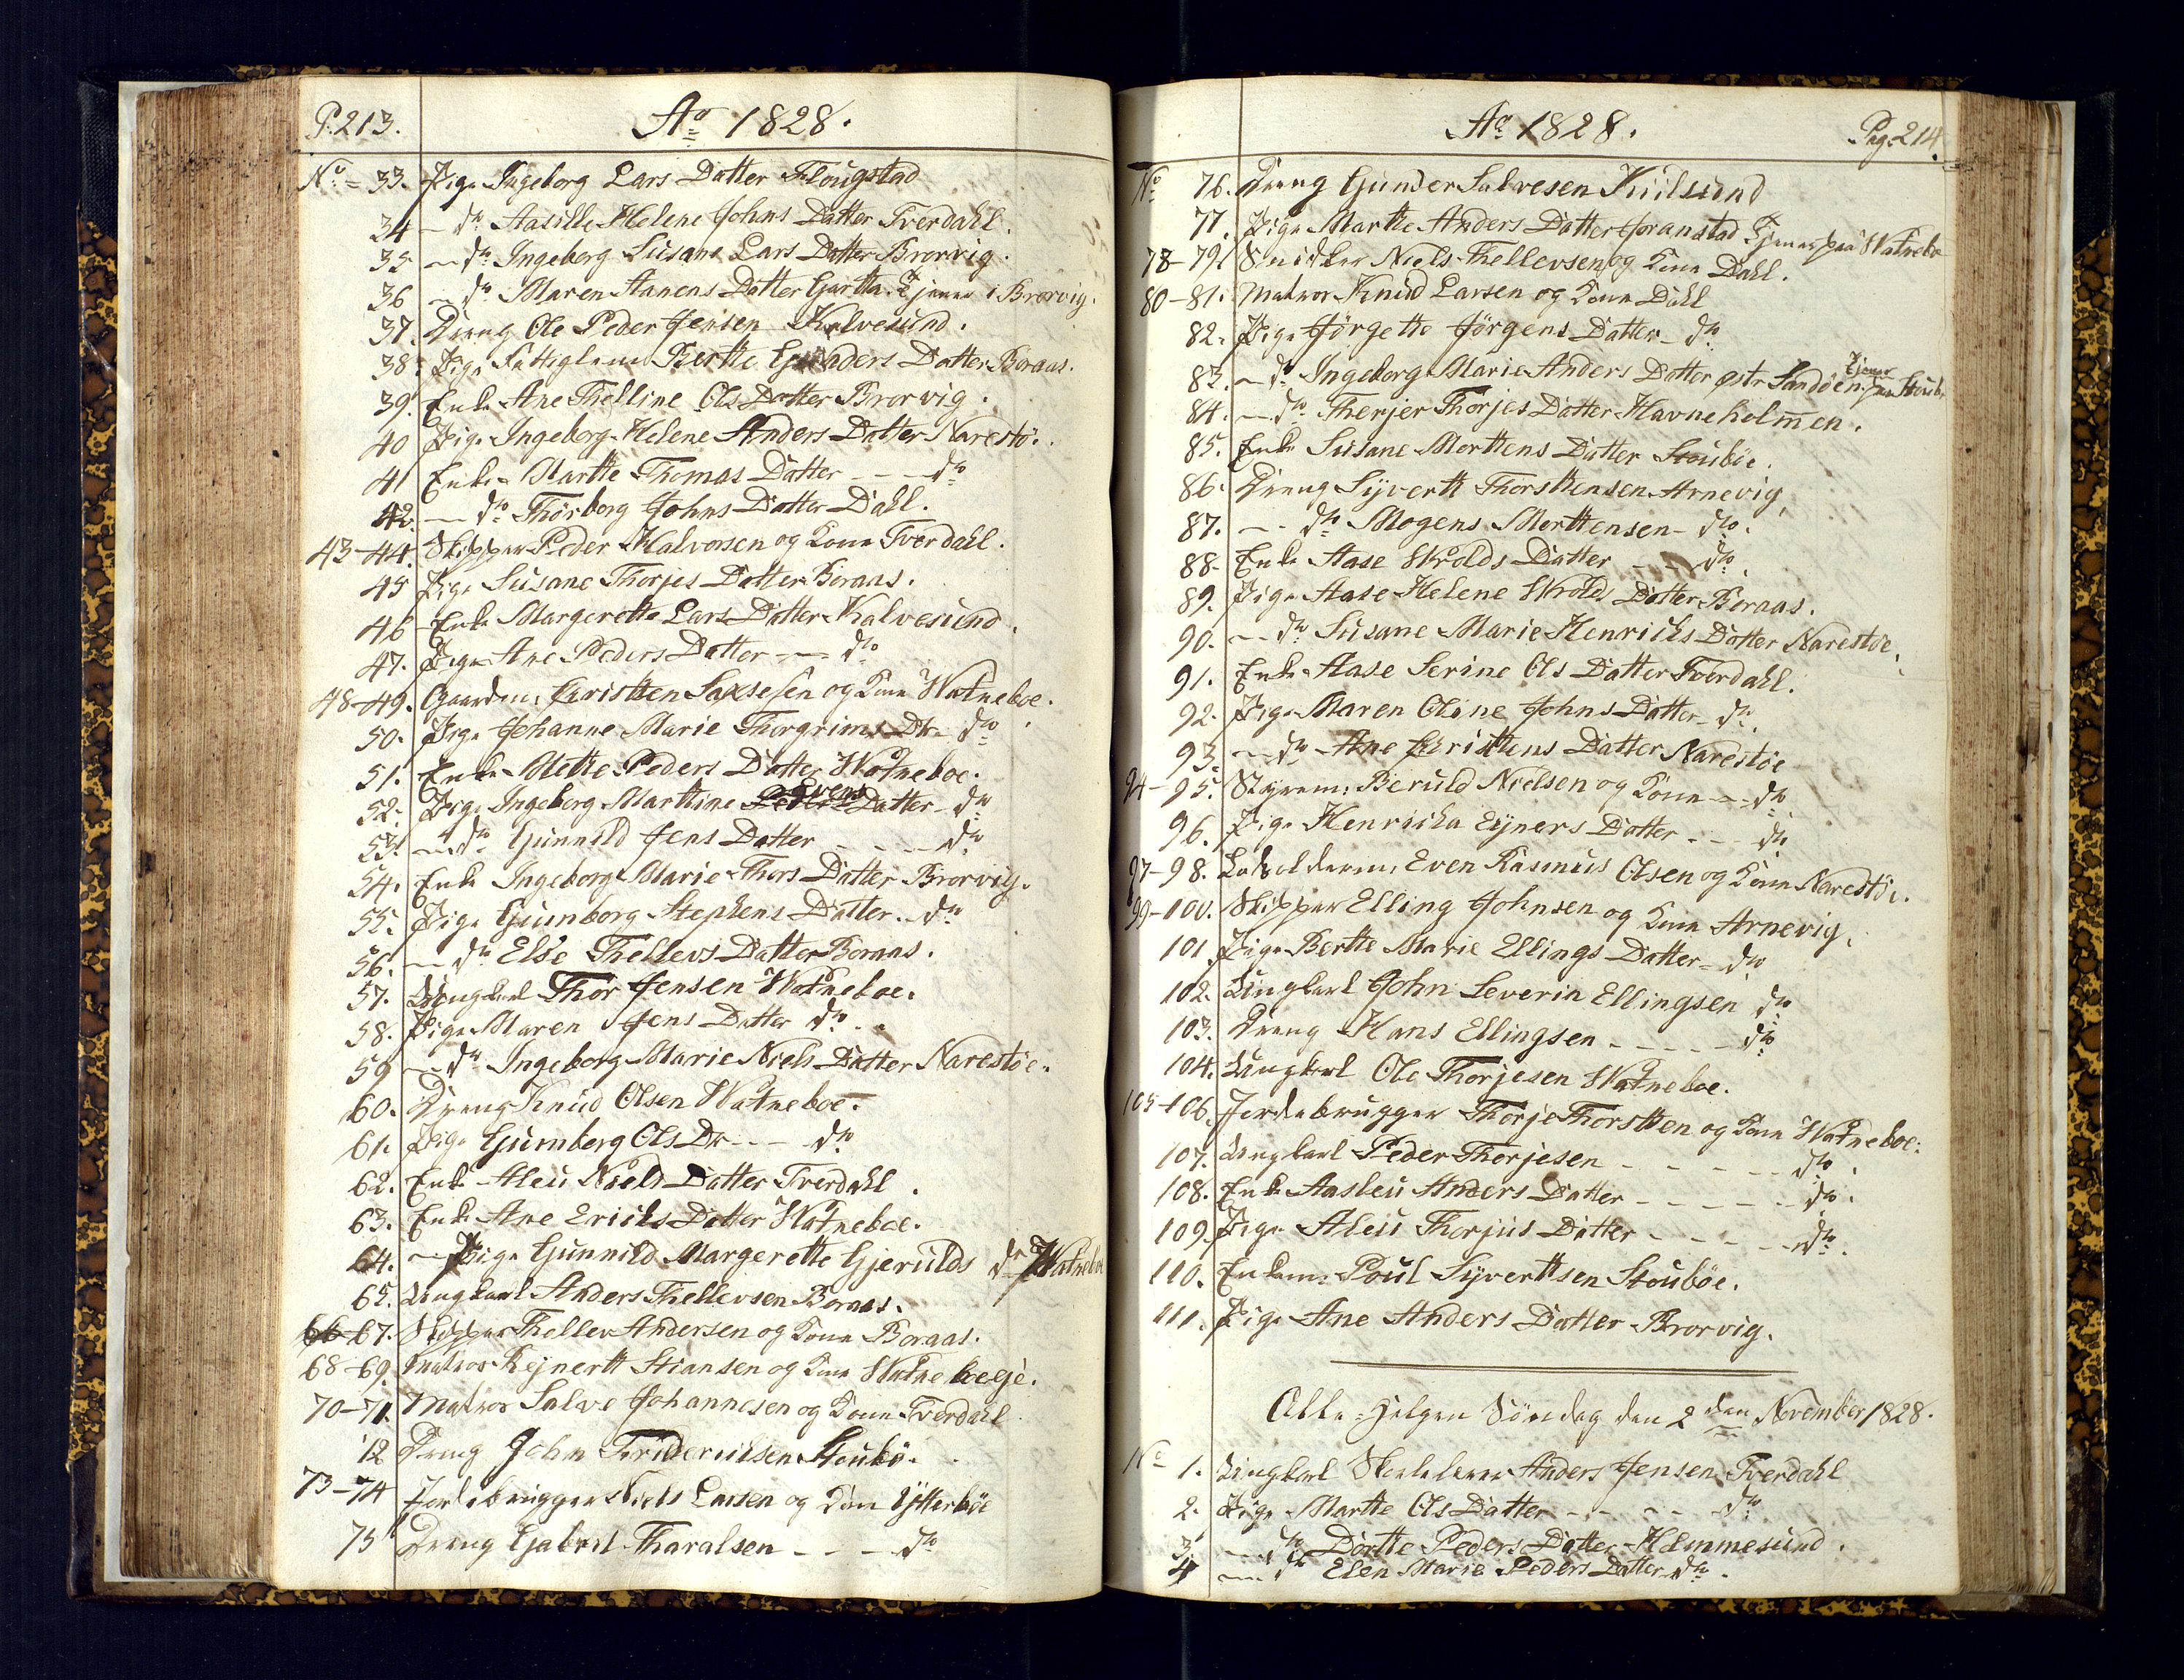 P. 213.
Aº 1828.
Nº = 33. Pige Ingeborg Lars Datter Flougstad
34 — dº Aasille Helene Johns Datter Tverdahl.
35 — dº Ingeborg Susane Lars Datter Brorvig.
36 — dº Maren Aanens Datter Gjartta. Tjener i Brorvig.
37. Dreng Ole Peder Jensen Kalvesund.
38. Pige Fattiglem Berthe Gunders Datter Boraas.
39. Enke Ane Thelline Ols Datter Brorvig.
40 Pige Ingeborg Helene Anders Datter Narestö.
41 Enke Marthe Thomas Datter — — dº
42. — dº Thorborg Johns Datter Dahl.
43-44. Skipper Peder Halvorsen og Kone Tverdahl.
45 Pige Susane Thorjes Datter Boraas.
46 Enke Margerethe Lars Datter Kalvesund.
47. Pige Ane Peders Datter — — dº
48-49. Gaardm: Christen Saxsesen og Kone Watneboe.
50. Pige Johanne Marie Thorgrims Dr — dº
51. Enke Mette Peders Datter Watneboe.
52. Pige Ingeborg Marthine Evens Datter — dº
53. — dº Gunnild Jens Datter — — — dº
54. Enke Ingeborg Marie Thors Datter Brorvig.
55. Pige Gumborg Stephens Datter — dº
56. — dº Else Thellevs Datter Boraas.
57. Ungkarl Thor Jensen Watneboe.
58. Pige Maren Jens Datter dº.
59 — dº Ingeborg Marie Niels Datter Narestöe.
60. Dreng Knud Olsen Watneboe.
61. Pige Gumberg Ols Dr — — dº
62. Enke Aleu Niels Datter Tverdahl.
63. Enke Ane Ericks Datter Watneboe.
64. — Pige Gunnild Margerethe Gjerulds dr Watneboe
65. Ungkarl Anders Thellevsen Boraas.
66-67. Skipper Thellev Andersen og Kone Boraas.
68-69. Matros Rejnertt Stiansen og Kone Watneboe
70-71. Matros Salve Johannesen og Kone Tverdahl
12 Dreng John Friderichsen Stoubö.
73-74 Jordebrugger Niels Larsen og Kone Ytterböe
75 Dreng Gabriel Tharalsen — — — dº
Aº 1828.
Pag. 214.
Nº 76. Dreng Gunder Salvesen Kiilsund
77. Pige Marthe Anders Datter Joranstad Tjener paa Watneboe
78-79. Snidker Niels Thellevsen og Kone Dahl.
80-81. Matros Knud Larsen og Kone Dahl
82. Pige Jörgette Jörgens Datter — dº
83. — dº Ingeborg Marie Anders Datter östr Sandöen Tjener paa Stoubö
84. — dº Therjer Thorjes Datter Havneholmen.
85. Enke Susane Morttens Datter Stouböe.
86. Dreng Syvertt Thorsttensen Arnevig
87. — dº Mogens Morttensen — dº.
88. Enke Aase Wrolds Datter — — dº.
89. Pige Aase Helene Wrolds Datter Boraas.
90. — dº Susane Marie Henricks Datter Narestöe.
91. Enke Aase Serine Ols Datter Tverdahl.
92. Pige Maren Oline Johns Datter — dº
93. — dº Ane Christtens Datter Narestöe
94-95. Styrem: Beruld Nielsen og Kone — dº
96. Pige Henricka Ejners Datter — — dº
97-98. Even Rasmus Olsen og Kone Narestöe.
99-100. Skipper Elling Johnsen og Kone Arnevig.
101. Pige Berthe Marie Ellings Datter — dº
102. Ungkarl John Severin Ellingsen dº
103. Dreng Hans Ellingsen — — — — dº
104. Ungkarl Ole Thorjesen Watneboe.
105-106. Jordebrugger Thorje Thorstten og Kone Watneboe.
107. Ungkarl Peder Thorjesen — — — — dº.
108. Enke Aasleu Anders Datter — — — — dº.
109. Pige Aleu Thorjus Datter — — — — dº.
110. Enkem: Poul Syverttsen Stouböe.
111. Pige Ane Anders Datter Brorvig.
Alle-Helgen Söndag den 2den November 1828.
Nº 1. Ungkarl Skolelærer Anders Jensen Tverdahl
2. Pige Marthe Ols Datter — — — dº
3. — dº Dortte Peders Datter Hammesund.
4 — dº Elen Marie Peders Datter dº.